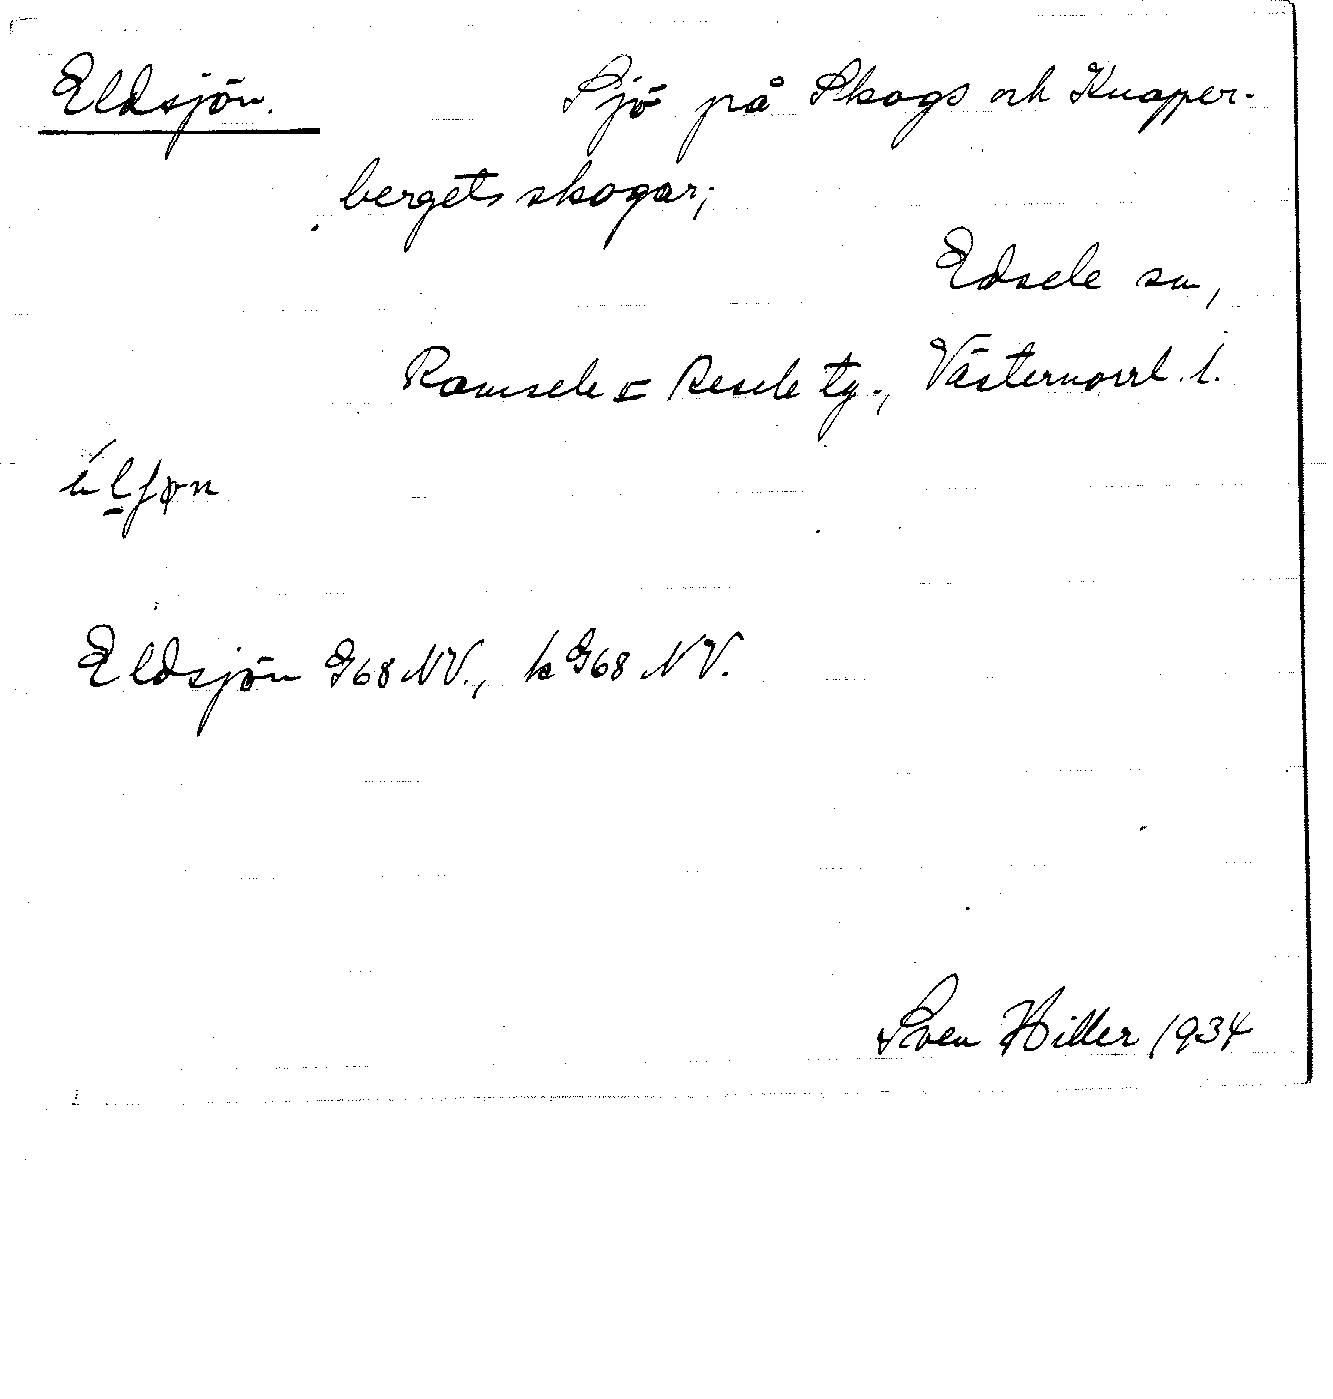 Eldsjön. Sjö på Skogs och Knapper-
bergets skogar;
Edsele sn,
Ramsele o Resele tg., Västernorrl. l.
Eldsjön G68 NV., k G68 NV.
Sven Hiller 1934